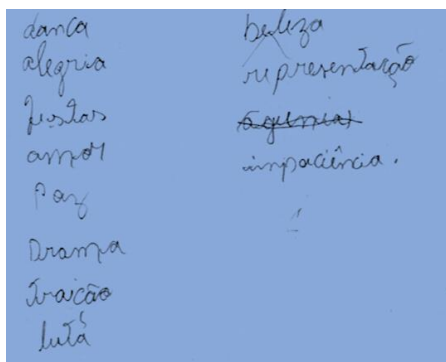 danca
alegria
festas
amor
Paz
Drama
traicão
lutá
beleza
representação
impaciência.